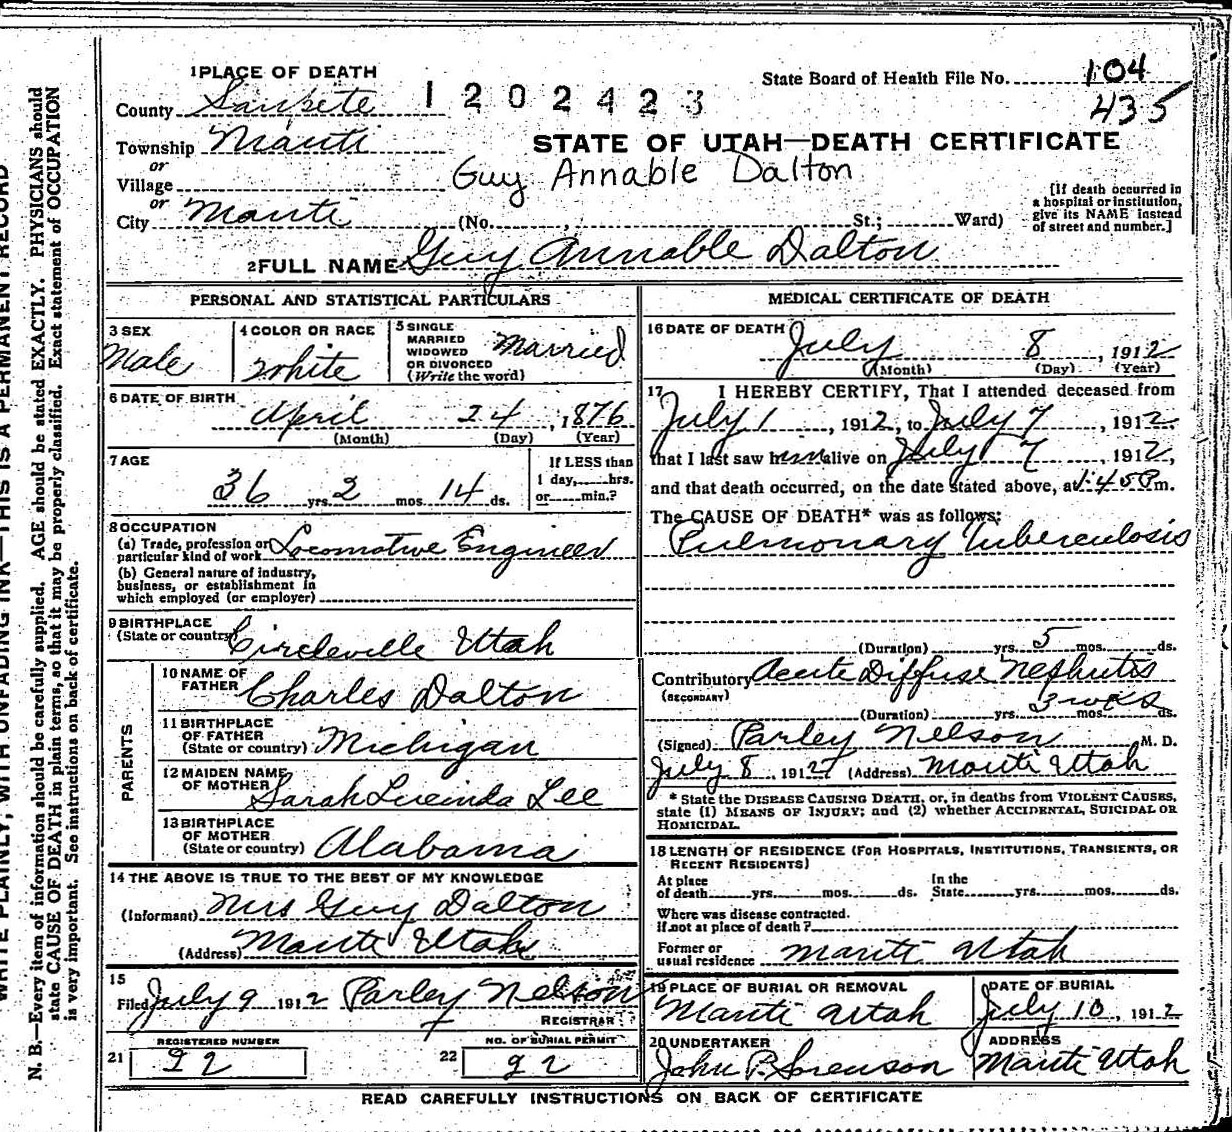 WRITE PLAINLY, WITH UNFADING INK—THIS IS A PERMANENT RECORD
N. B.—Every item of information should be carefully supplied. AGE should be stated EXACTLY. PHYSICIANS should
state CAUSE OF DEATH in plain terms, so that it may be properly classified. Exact statement of OCCUPATION
is very important. See instructions on back of certificate.
1 PLACE OF DEATH
State Board of Health File No. 104
435
County Sanpete
1 2 0 2 4 2 3
Township Manti
STATE OF UTAH—DEATH CERTIFICATE
or
Village
Guy Annable Dalton
or
City Manti (No. St.; Ward)
[If death occurred in
a hospital or institution,
give its NAME instead
of street and number.]
2 FULL NAME Guy Annable Dalton
PERSONAL AND STATISTICAL PARTICULARS
3 SEX
Male
4 COLOR OR RACE
White
5 SINGLE
MARRIED
WIDOWED
OR DIVORCED
(Write the word)
Married
6 DATE OF BIRTH
April 24, 1876
(Month) (Day) (Year)
7 AGE
36 yrs. 2 mos. 14 ds.
If LESS than
1 day, hrs.
or min.?
8 OCCUPATION
(a) Trade, profession or
particular kind of work Locomotive Engineer
(b) General nature of industry,
business, or establishment in
which employed (or employer)
9 BIRTHPLACE
(State or country) Circleville Utah
PARENTS
10 NAME OF
FATHER Charles Dalton
11 BIRTHPLACE
OF FATHER
(State or country) Michigan
12 MAIDEN NAME
OF MOTHER Sarah Lucinda Lee
13 BIRTHPLACE
OF MOTHER
(State or country) Alabama
14 THE ABOVE IS TRUE TO THE BEST OF MY KNOWLEDGE
(Informant) Mrs Guy Dalton
(Address) Manti Utah
15
Filed July 9 1912 Parley Nelson
REGISTRAR
REGISTERED NUMBER
21 92
NO. OF BURIAL PERMIT
22 92
MEDICAL CERTIFICATE OF DEATH
16 DATE OF DEATH
July 8, 1912
(Month) (Day) (Year)
17 I HEREBY CERTIFY, That I attended deceased from
July 1, 1912, to July 7, 1912,
that I last saw him alive on July 7, 1912,
and that death occurred, on the date stated above, at 1:45 P m.
The CAUSE OF DEATH* was as follows:
Pulmonary Tuberculosis
(Duration) yrs. 5 mos. ds.
Contributory Acute Diffuse Nephritis
(SECONDARY)
(Duration) yrs. 3 wks mos. ds.
(Signed) Parley Nelson M. D.
July 8, 1912 (Address) Manti Utah
* State the DISEASE CAUSING DEATH, or, in deaths from VIOLENT CAUSES,
state (1) MEANS OF INJURY; and (2) whether ACCIDENTAL, SUICIDAL OR
HOMICIDAL.
18 LENGTH OF RESIDENCE (FOR HOSPITALS, INSTITUTIONS, TRANSIENTS, OR
RECENT RESIDENTS)
At place
of death yrs. mos. ds.
In the
State yrs. mos. ds.
Where was disease contracted.
If not at place of death?
Former or
usual residence Manti Utah
19 PLACE OF BURIAL OR REMOVAL
Manti Utah
DATE OF BURIAL
July 10, 1912
20 UNDERTAKER
John P. Sorenson
ADDRESS
Manti Utah
READ CAREFULLY INSTRUCTIONS ON BACK OF CERTIFICATE